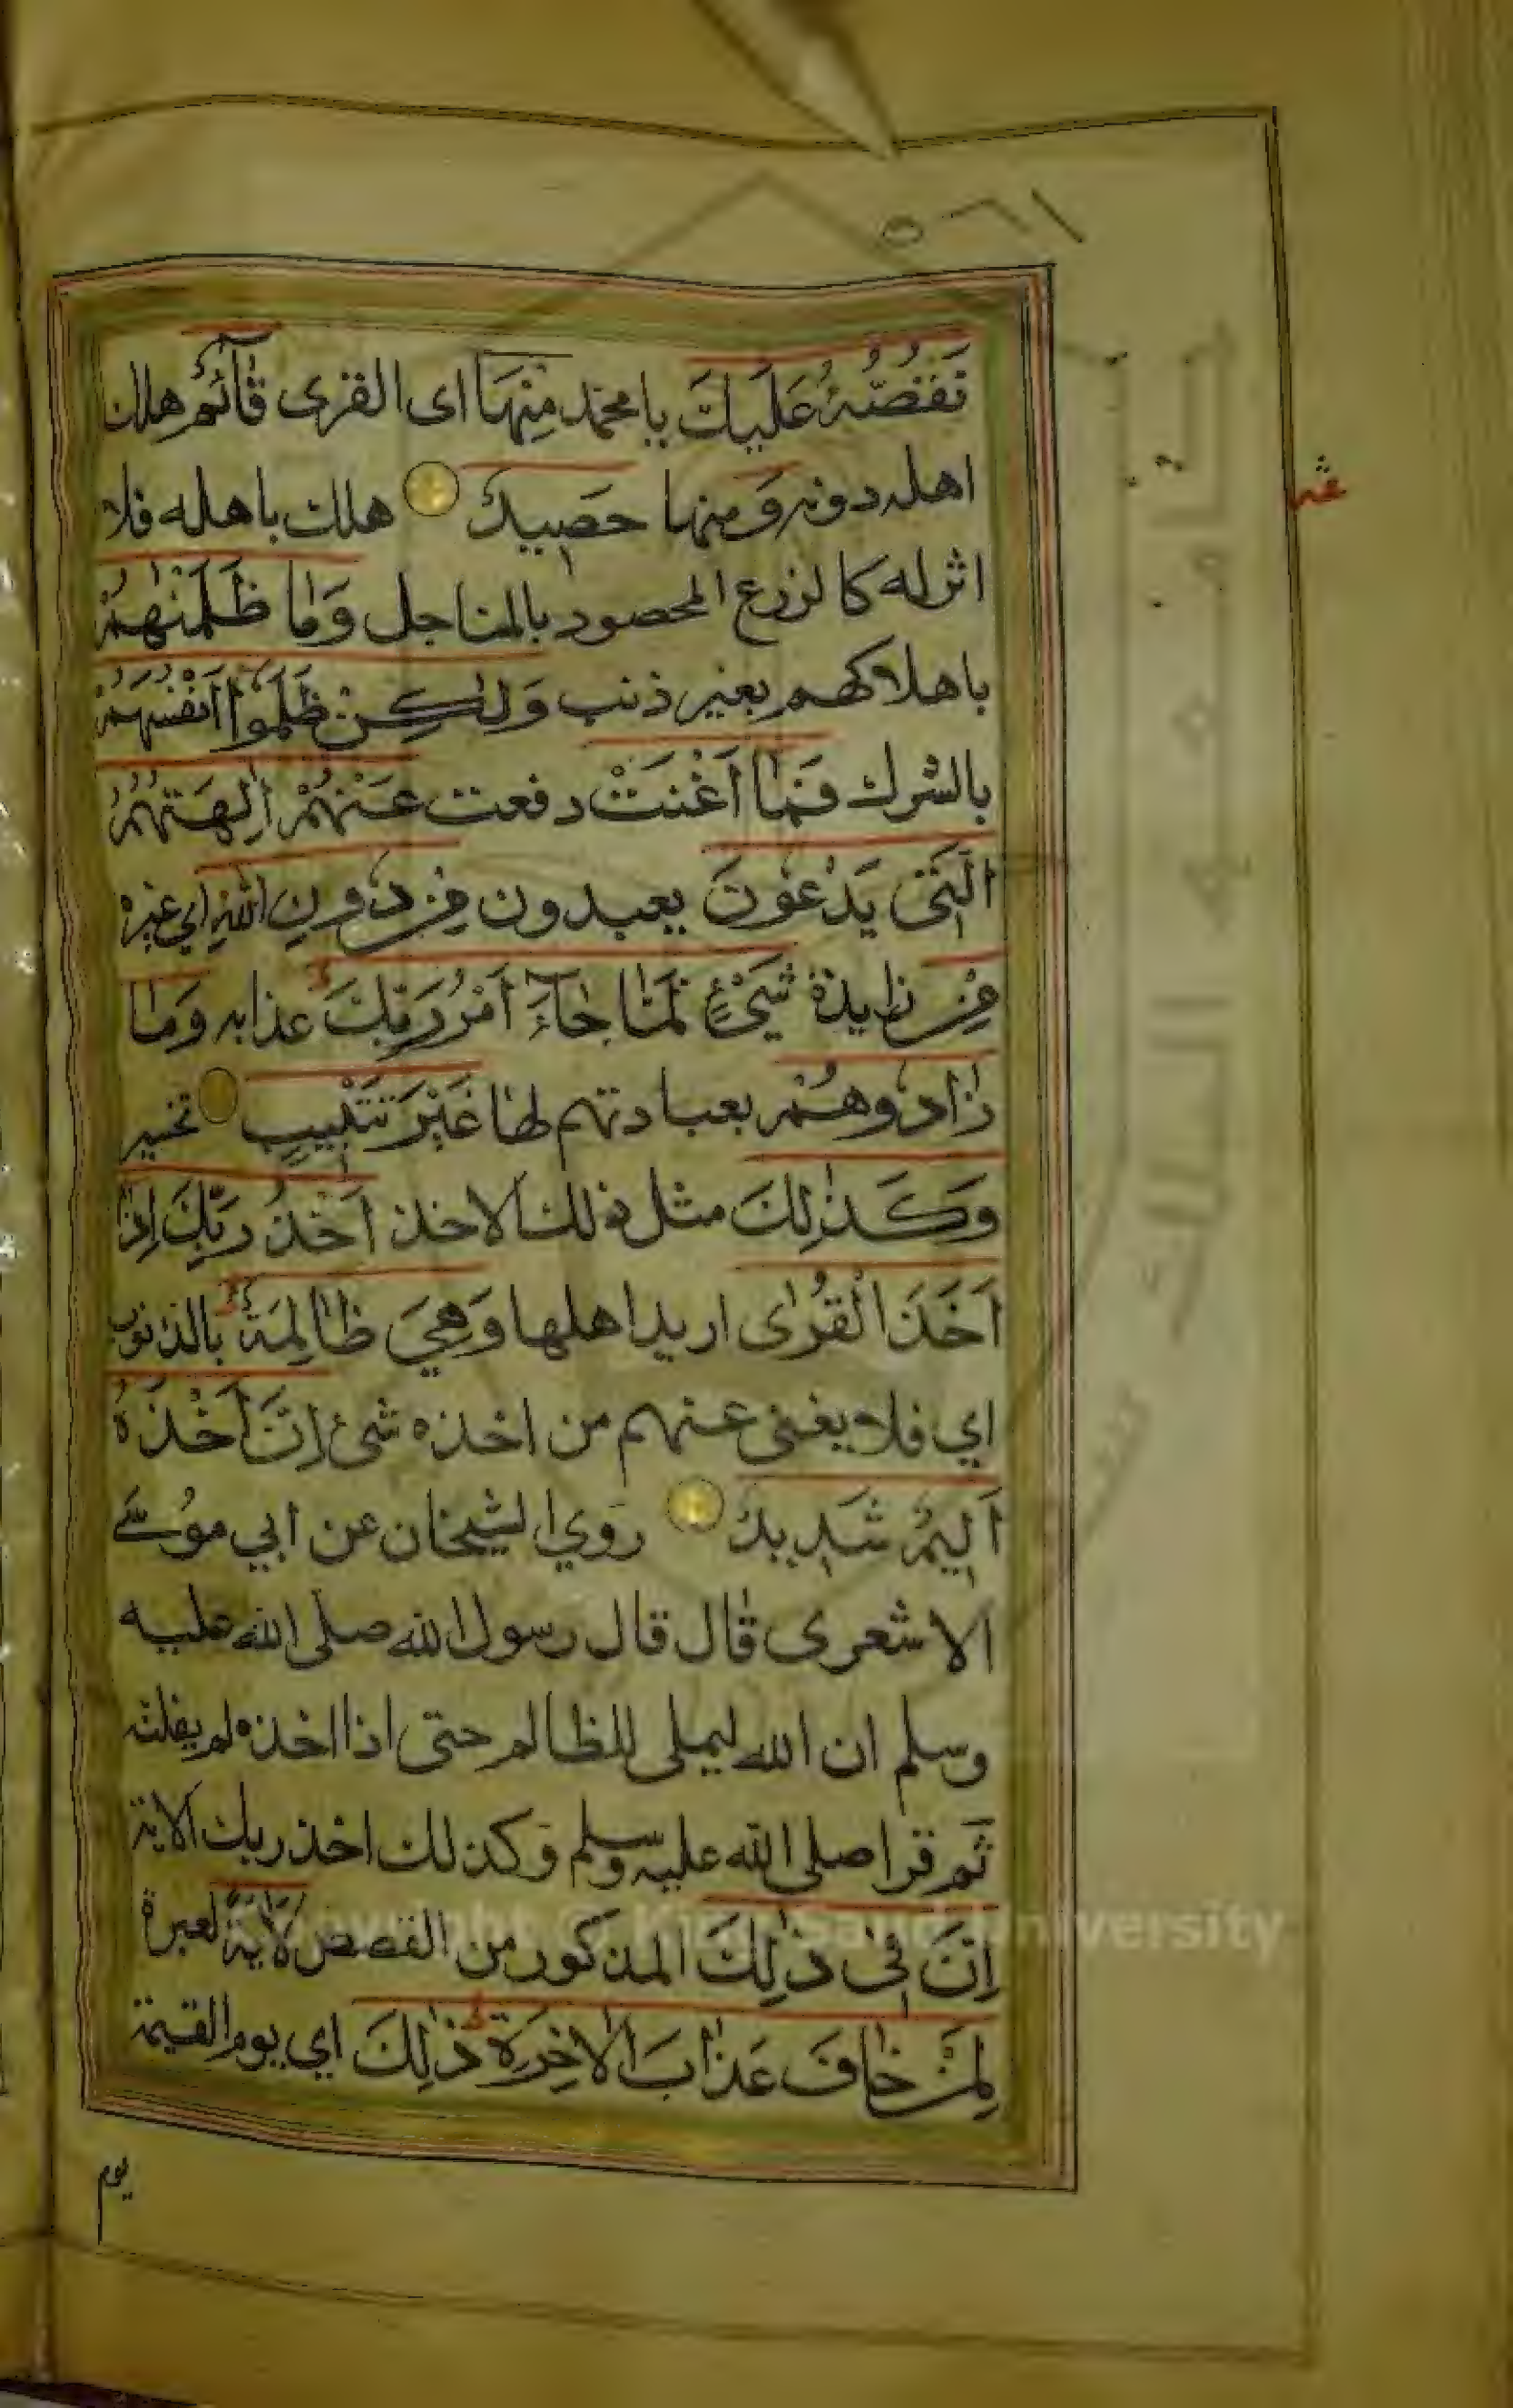 ٥٦١
نَقُصُّهُ عَلَيْكَ يا محمد مِنْهَا اى القرى قَآئِمٌ هلك
اهله دونه وَمنها حَصِيدٌ هلك باهله فلا
اثر له كالزرع المحصود بالمناجل وَمَا ظَلَمْنٰهُمْ
باهلاكهم بغير ذنب وَلٰكِنْ ظَلَمُوٓا اَنْفُسَهُمْ
بالشرك فَمَا اَغْنَتْ دفعت عَنْهُمْ اٰلِهَتُهُمُ
الَّتِى يَدْعُونَ يعبدون مِنْ دُونِ اللّٰهِ اي غيره
مِنْ زايدة شَيْئٍ لَمَّا جَآءَ اَمْرُ رَبِّكَ عذابه وَمَا
زَادُوهُمْ بعبادتهم لها غَيْرَ تَتْبِيبٍ تخسير
وَكَذٰلِكَ مثل ذلك الاخذ اَخْذُ رَبِّكَ اِذَا
اَخَذَ الْقُرٰى اريد اهلها وَهِيَ ظَالِمَةٌ بالذنوب
اي فلا يغنى عنهم من اخذه شئ اِنَّ اَخْذَهُ
اَلِيمٌ شَدِيدٌ روي الشيخان عن ابي موُسَى
الاشعرى قال قال رسول الله صلى الله عليه
وسلم ان الله ليملى للظالم حتى اذا اخذه لم يفلته
ثم قرا صلى الله عليه وسلم وكذلك اخذ ربك الاية
اِنَّ فِى ذٰلِكَ المذكور من القصص لَاٰيَةً لعبرة
لِمَنْ خَافَ عَذَابَ الْاٰخِرَةِ ذٰلِكَ اي يوم القيمة
يوم
Copyright © King Saud University